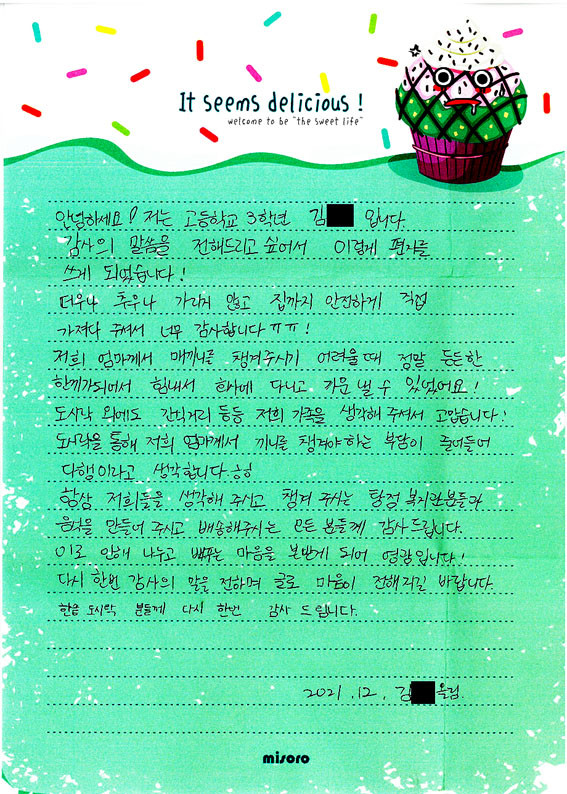 It seems delicious !
welcome to be "the sweet life"
안녕하세요! 저는 고등학교 3학년 김 입니다.
감사의 말씀을 전해드리고 싶어서 이렇게 편지를
쓰게 되었습니다!
더우나 추우나 가리지 않고 집까지 안전하게 직접
가져다 주셔서 너무 감사합니다ㅠㅠ!
저희 엄마께서 매끼니를 챙겨주시기 어려울때 정말 든든한
한끼가되어서 힘내서 회사에 다니고 기운 낼 수 있었어요!
도시락 외에도 간식거리 등등 저희 가족을 생각해 주셔서 고맙습니다!
도시락을 통해 저희 엄마께서 끼니를 챙겨야하는 부담이 줄어들어
다행이라고 생각합니다
항상 저희들을 생각해 주시고 챙겨 주시는 탕정 복지관분들과
음식을 만들어 주시고 배송해주시는 모든 분들께 감사드립니다.
이로 인해 나누고 베푸는 마음을 본받게 되어 영광입니다!
다시 한번 감사의 말을 전하며 글로 마음이 전해지길 바랍니다.
한솥 도시락 분들께 다시 한번 감사 드립니다.
2021.12. 김 올림.
misoro